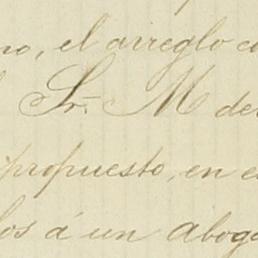 no, el arreglo co
Sr. M de
propuesto, en e
los á un abog